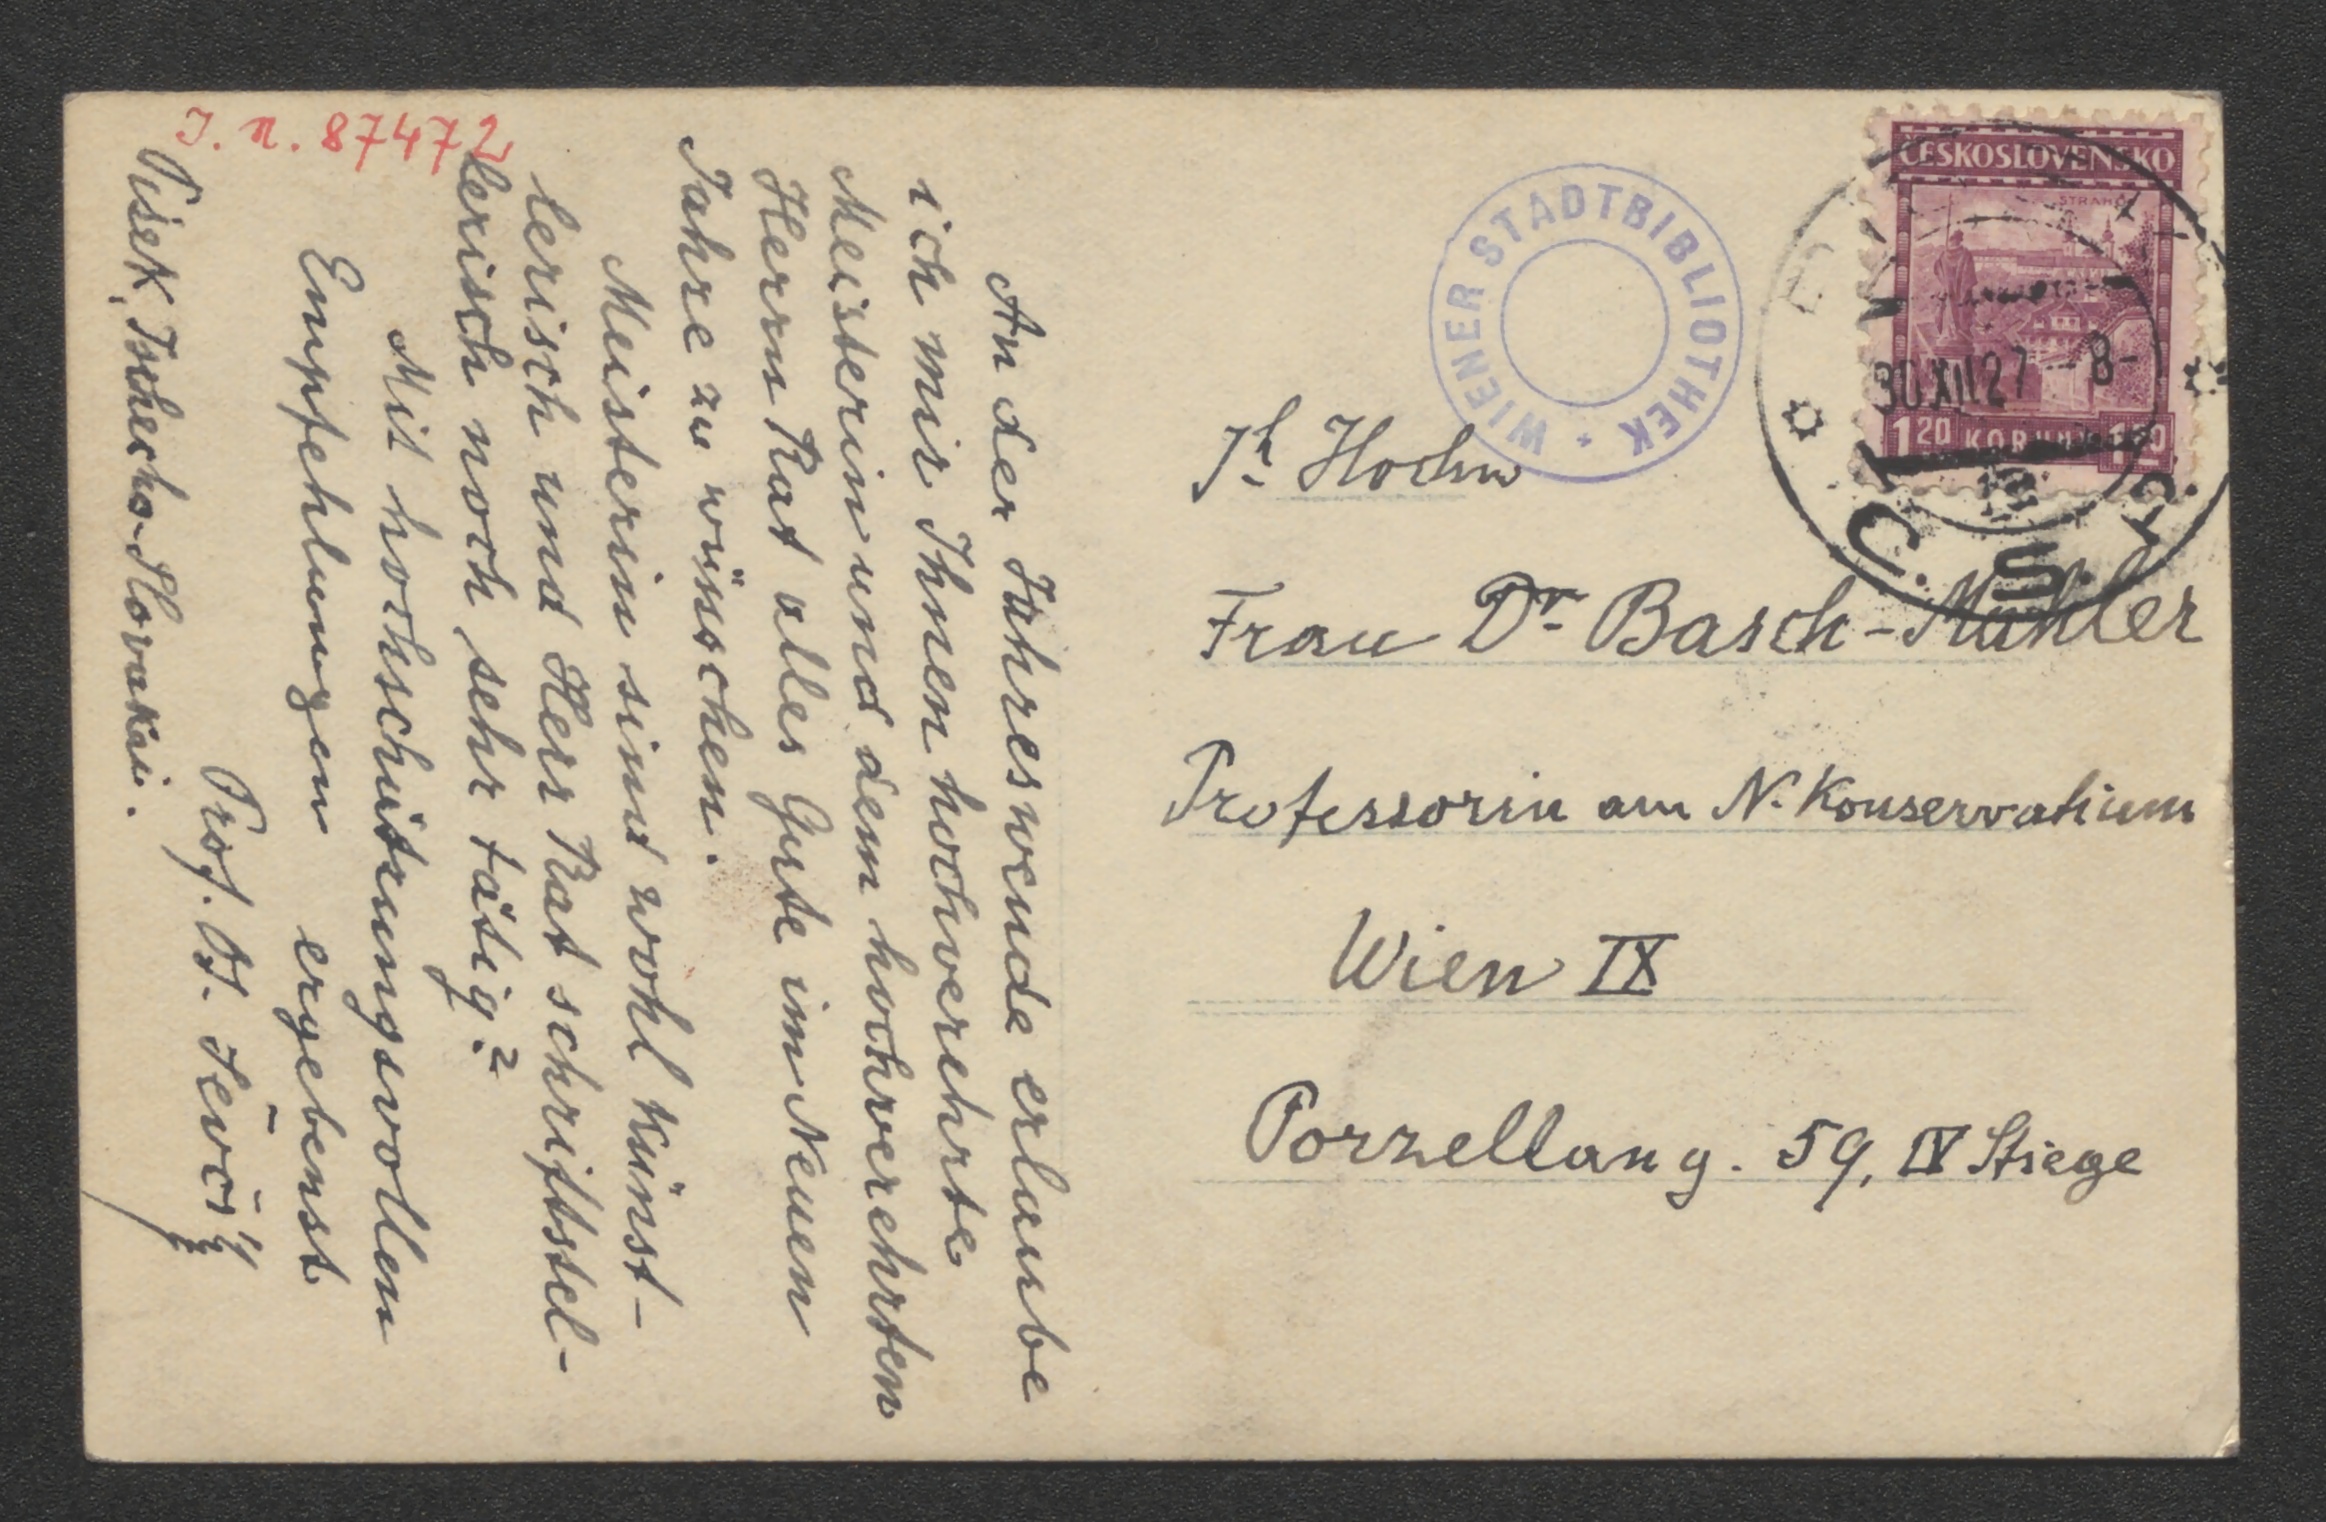 J. N. 87472
An der Jahreswende erlaube
ich mir Ihnen hochverehrte
Meisterin und dem hochverehrten
Herrn Rat alles Gute im Neuen
Jahre zu wünschen.
Meisterin sind wohl künst-
lerisch und Herr Rat schriftstel-
lerisch noch sehr tätig?
Mit hochschätzungsvollen
Empfehlungen ergebenst
Prof. Ot. Ševčík
Pisek, Tschecho-Slovakai.
WIENER STADTBIBLIOTHEK
ČESKOSLOVENSKO
STRAHOV
30.XII.27 -8-
1 20 KORUNA 1 20
Č.S.
Hochw
Frau Dr Basch-Mahler
Professorin am N. Konservatium
Wien IX
Porzellang. 59, IV Stiege